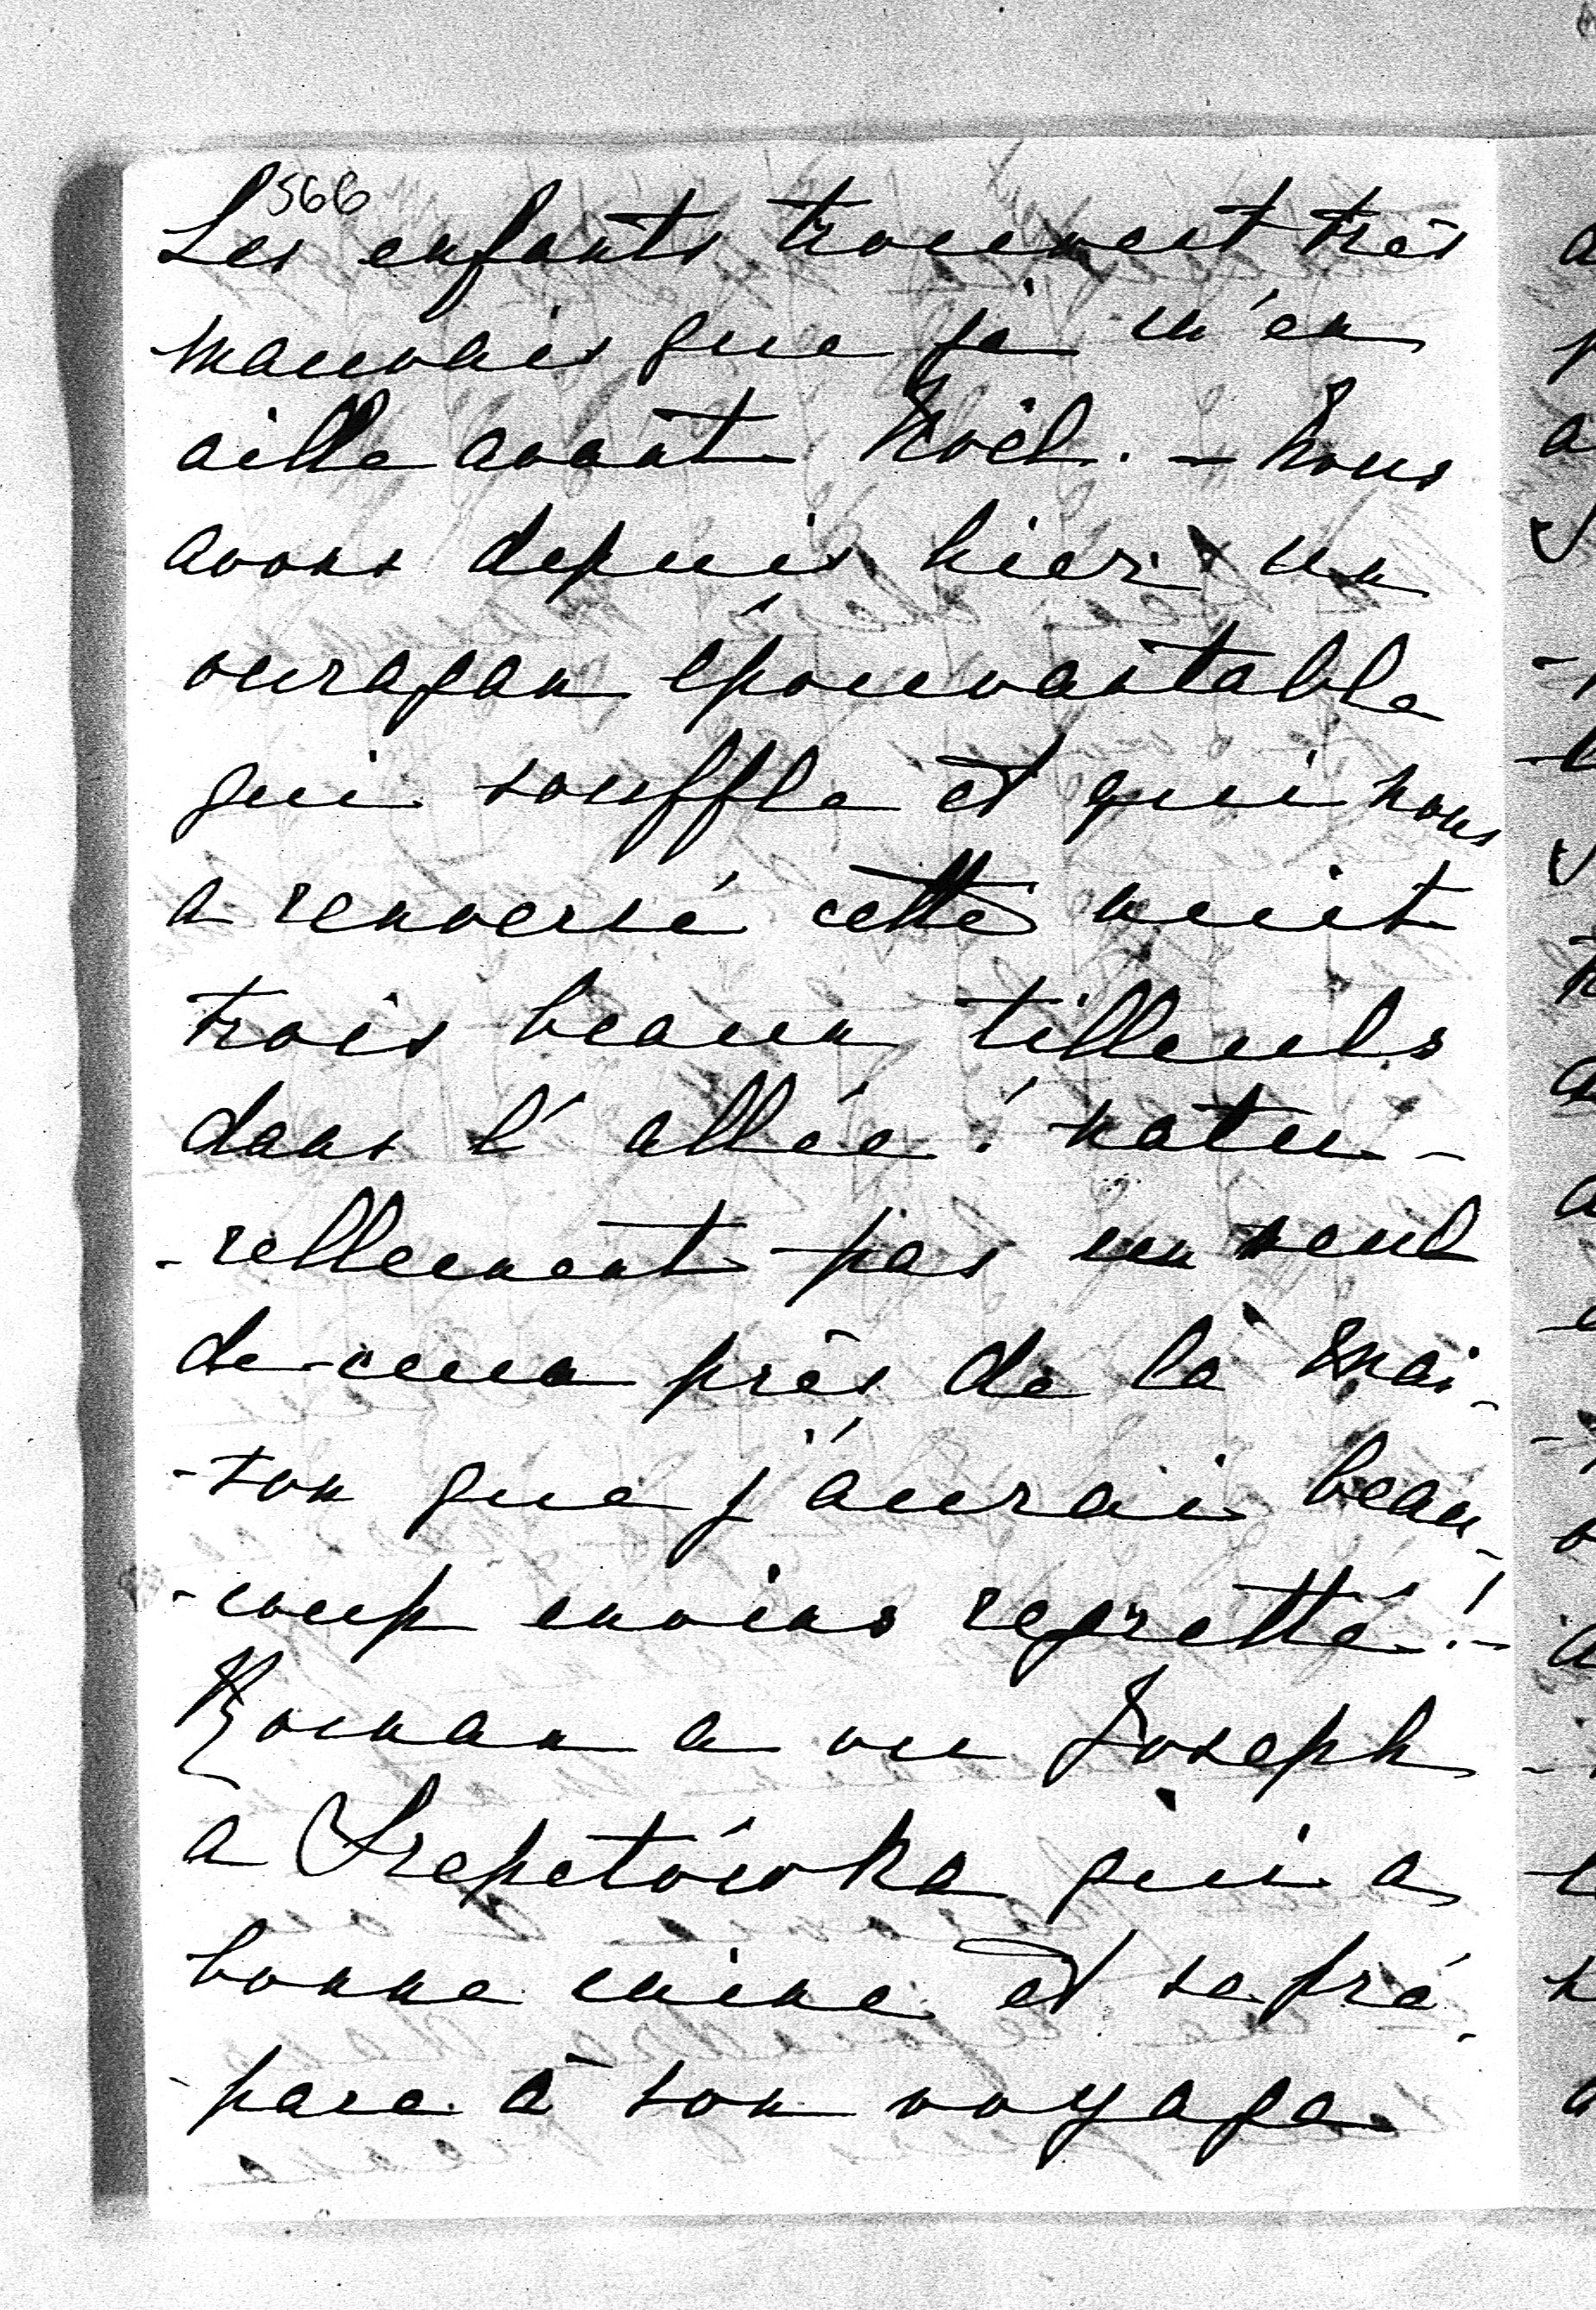 566
Les enfants trouvent très
mauvais que je m'en
aille avant Noël. – Nous
avons depuis hier un
ouragan épouvantable
qui souffle et qui nous
a renversé cette nuit
trois beaux tilleuls
dans l'allée! natu-
-rellement pas un seul
de ceux près de la mai-
-son que j'aurai beau-
-coup moins regretté! –
Roman a vu Joseph
a Szepetówka qui a
bonne mine et se pré-
-pare à son voyage